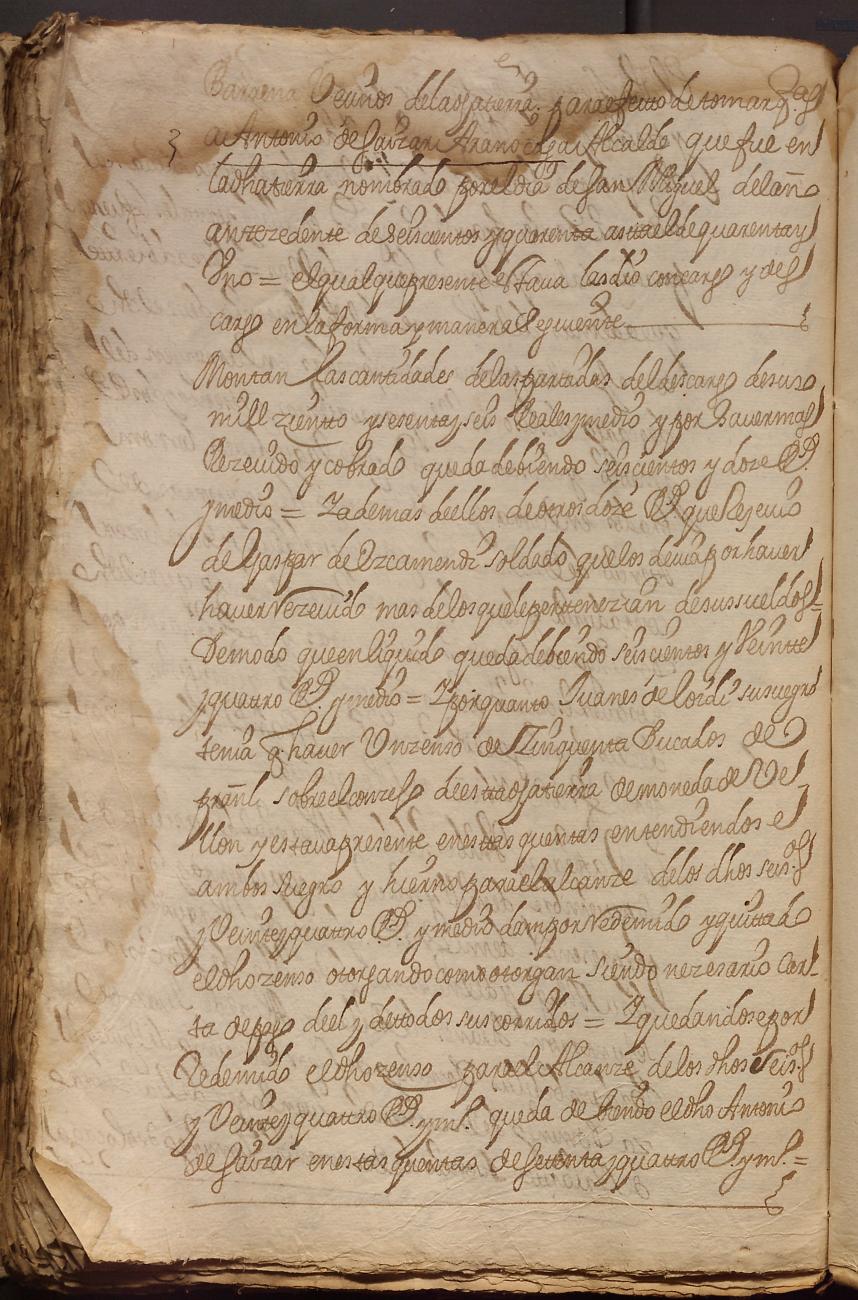 Barrena Veçinos dela dha tierra. para efecto de tomar qtas
a Antonio de Gaizar Alcalde que fue en
la dha tierra nombrado por el dia de San Miguel del año
antezedente de seiscientos y quarenta asta el de quarenta y
Vno = el qual que presente estaua las dio con cargo y des
cargo en la forma y manera seguiente
Montan las cantidades de las partidas del descargo de suso
mill ziento y sesenta y seis Reales y medio y por hauer mas
Rezeuido y cobrado queda debiendo seiscientos y doze RR.
y medio = Y ademas de ellos de otros doze RR. que Rezeuio
de Gaspar de Yzcamendi soldado que los deuia por hauer
hauer Rezeuido mas de los que le pertenezian de sus sueldos =
De modo que en liquido queda debiendo seiscientos y Veintte
y quattro RR. y medio = Y por quanto Juanes de Loidi su suegro
tenia q hauer Vn zenso de Zinquenta Ducados de
prinl. sobre el conzejo de estta dha tierra de moneda de Ve
llon y estaua presente en estas quentas entendiendose
ambos suegro y hierno para el alcanze de los dhos seis.os
y Veinte y quattro RR. y medio dan por Redemido y quittado
el dho zenso otorgando como otorgan siendo nezesario Car
ta de pago de el y de ttodos sus corridos = Y quedandose por
Redemido el dho zenso para el Alcanze de los dhos Seis.os
y Veinte y quattro RR. y m.o queda debiendo el dho Antonio
de Gaizar en estas quentas de setenta y quattro RR. y m.o =